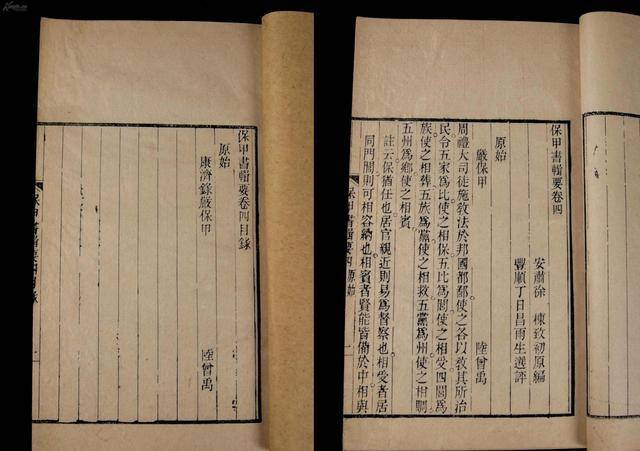 保甲書輯要卷四目錄
原始
康濟錄嚴保甲 陸曾禹
保甲書輯要四目錄 一
保甲書輯要卷四
安肅徐 棟致初原編
豐順丁日昌雨生選評
原始
嚴保甲 陸曾禹
周禮大司徒施教法於邦國都鄙使之各以教其所治
民令五家爲比使之相保五比爲閭使之相受四閭爲
族使之相葬五族爲黨使之相救五黨爲州使之相賙
五州爲鄉使之相賓
註云保猶任也居官親近則易爲督察也相受者居
同門閭則可相容納也相賓者賢能皆備於中相與
保甲書輯要四 原始 一